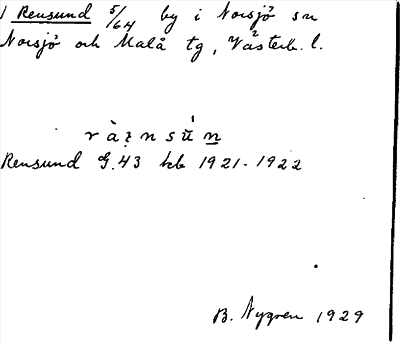 1 Rensund 5/64 by i Norsjö sn
Norsjö och Malå tg, Västerb. l.
Rensund G.43 kb 1921-1922
B. Nygren 1929